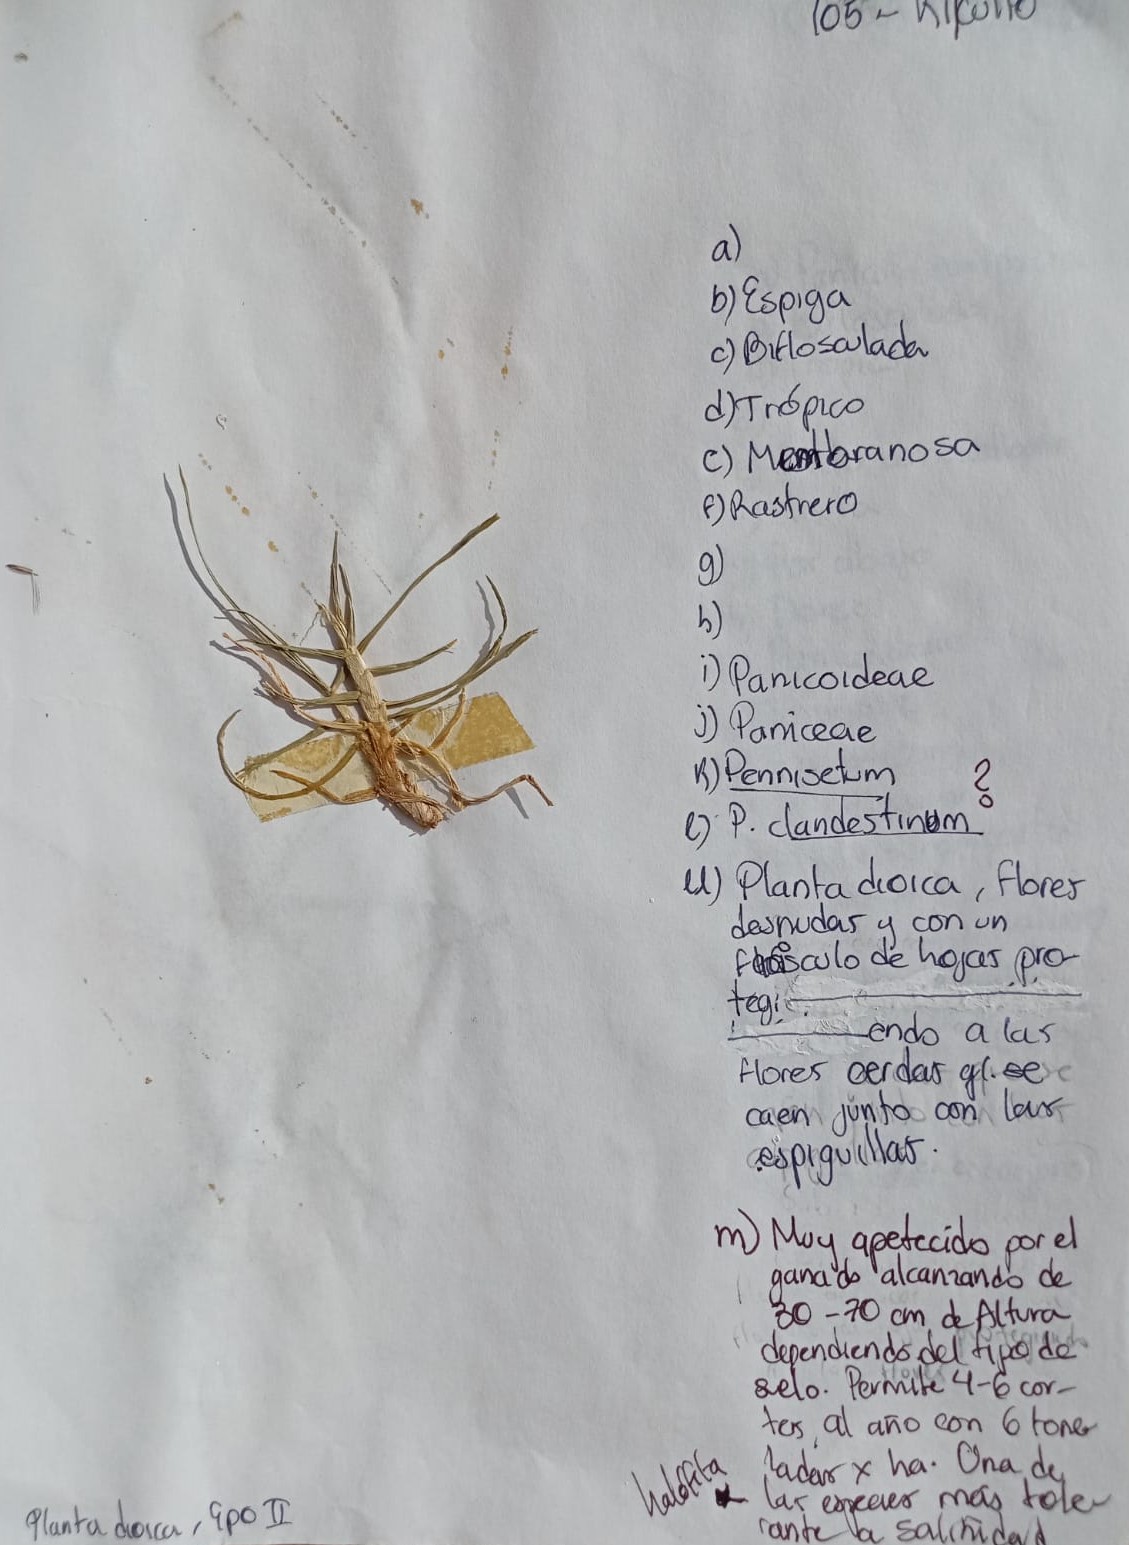 105 - Kikuno
a)
b) Espiga
c) Biflosculada
d) Trópico
e) Membranosa
f) Rastrero
g)
h)
i) Panicoideae
j) Paniceae
k) Pennisetum ?
l) P. clandestinum
ll) Planta dioica, flores
desnudas y con un
fasículo de hojas pro-
tegi
endo a las
flores cerdas q(. se
caen junto con las
espiguillas.
m) Muy apetecido por el
ganado alcanzando de
30 - 70 cm de Altura
dependiendo del tipo de
suelo. Permite 4-6 cor-
tes al año con 6 tone
ladas x ha. Una de
halófita las especies más tole-
rante a salinidad
Planta dioica, tipo II